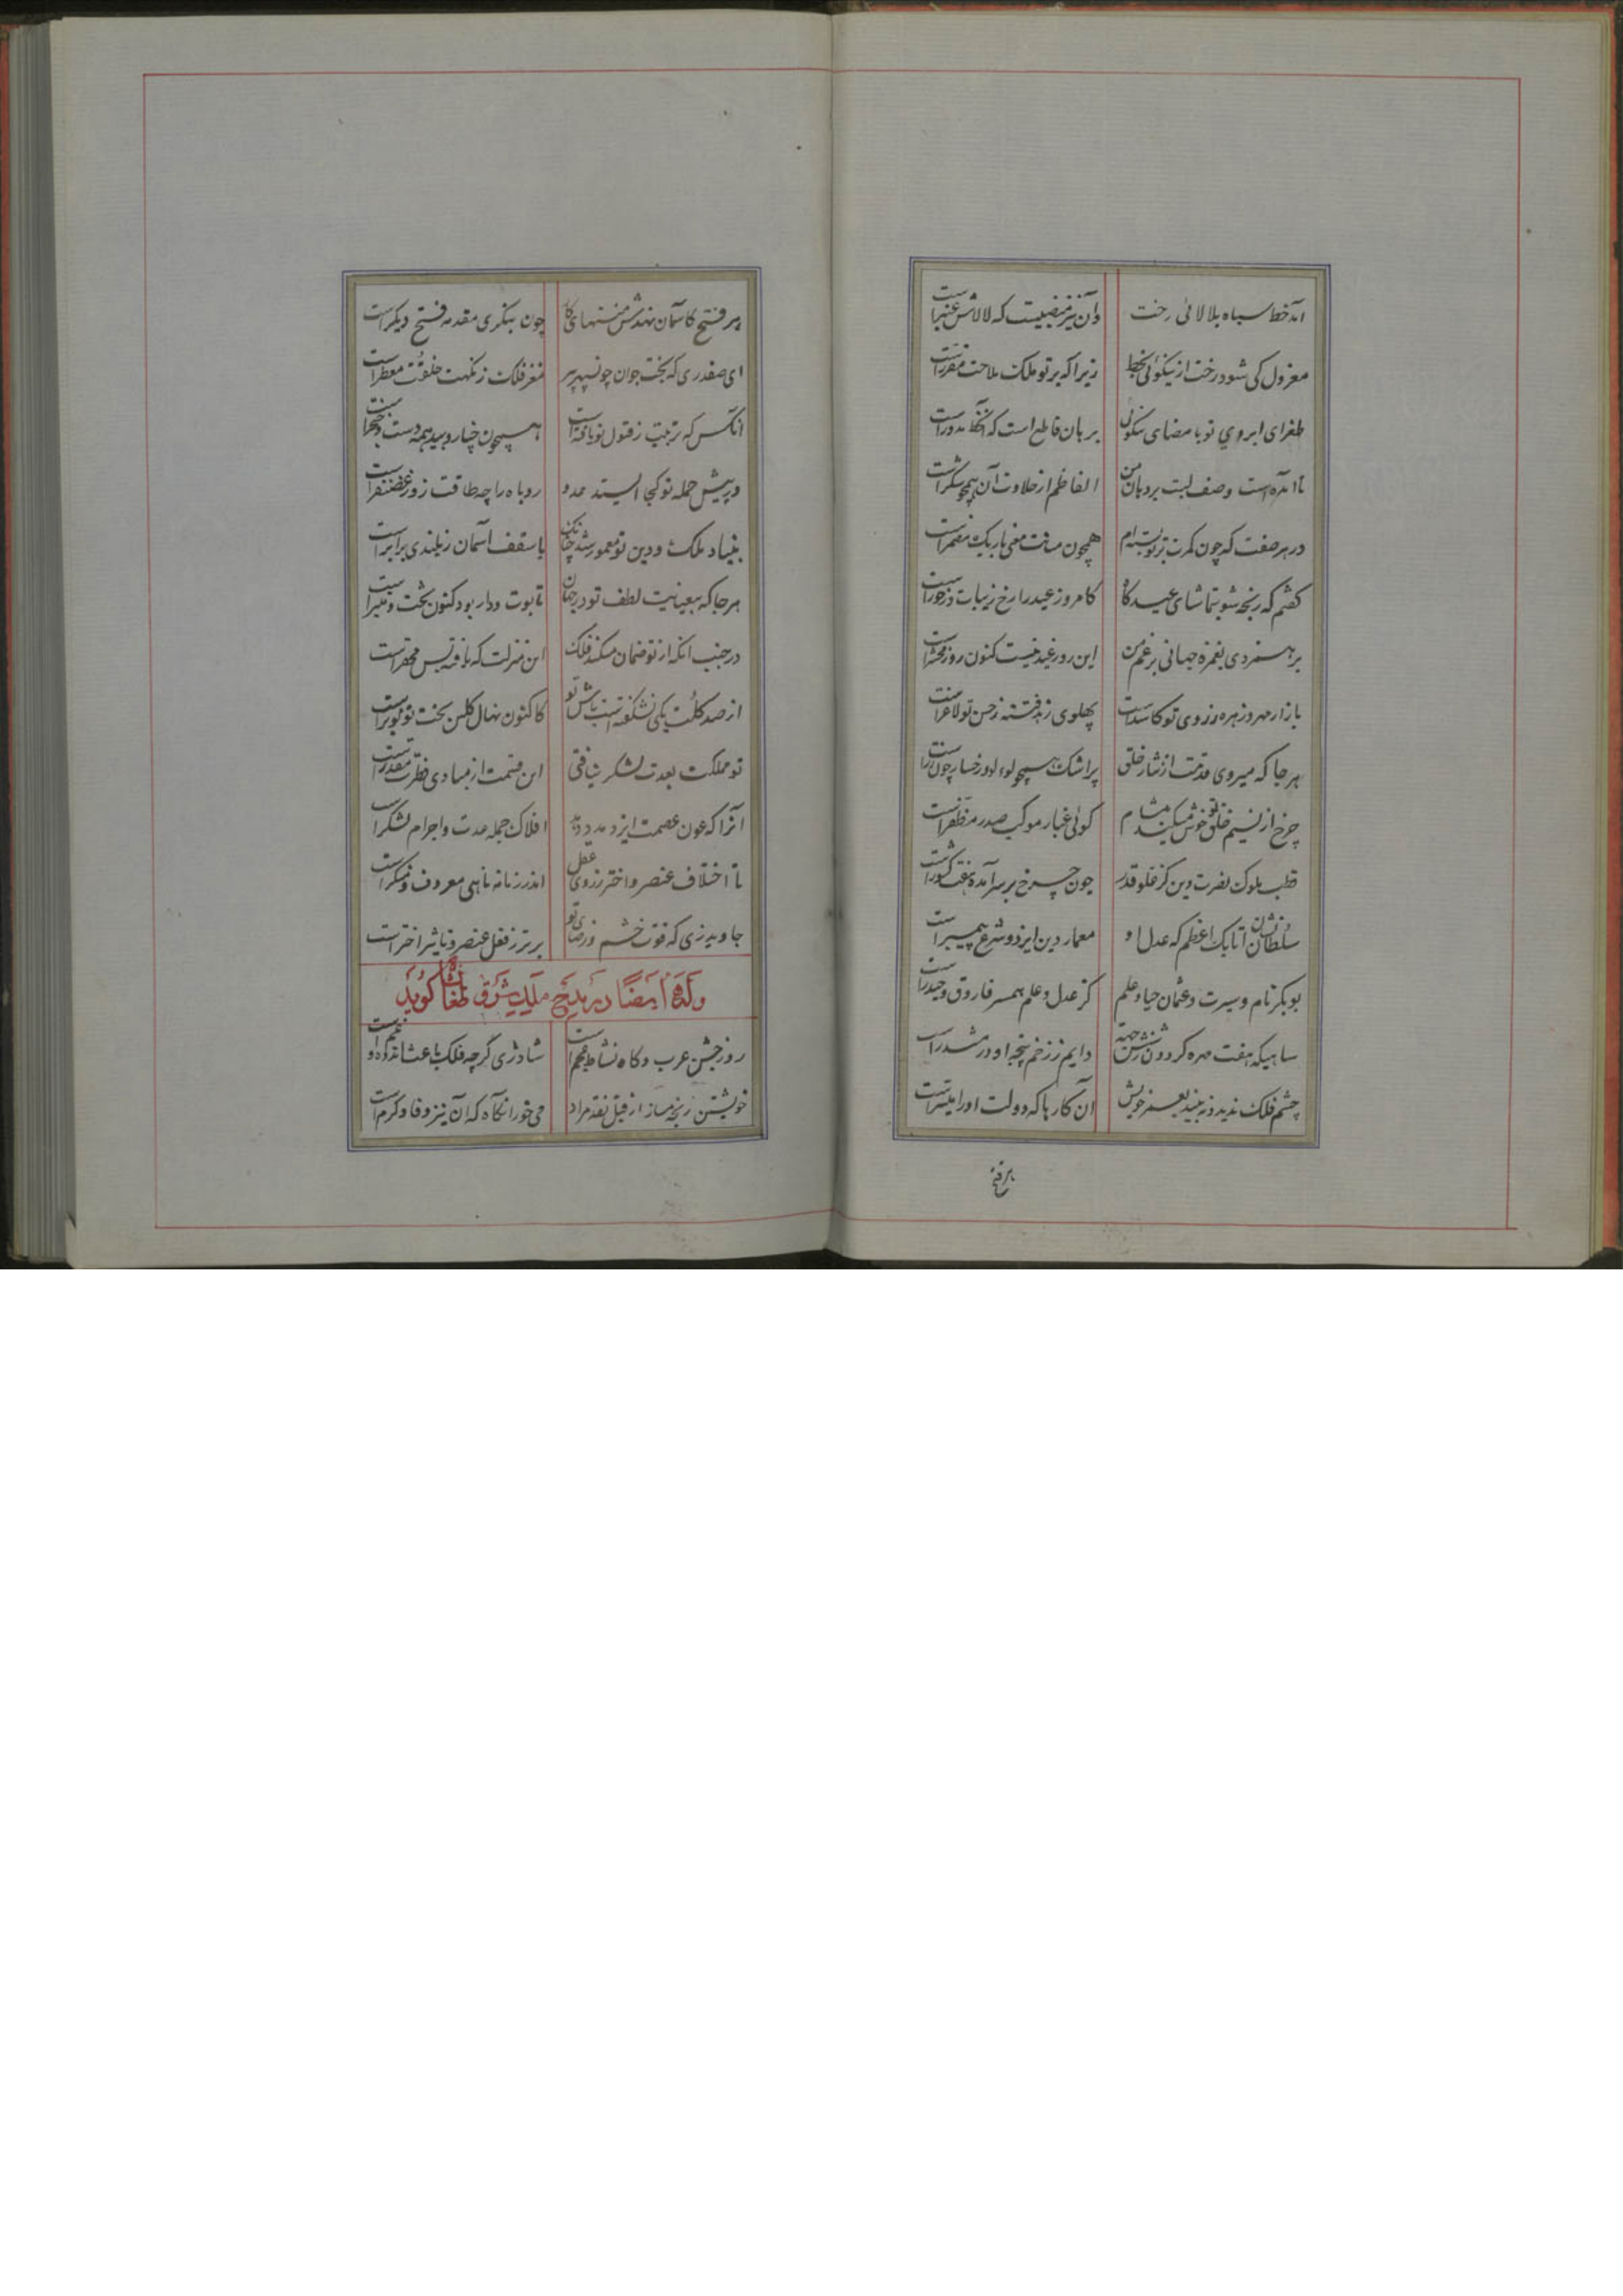 آمد خط سیاه بلالائی رخت وان نیز منصبیست که لالاش عنبر است
معزول کی شود رخت از نیکوئی بخط زیرا که بر تو ملک ملاحت مقرر است
طغرای ابروی تو با مضای نیکوئی برهان قاطع است که آن خط مدور است
تا آمده است وصف لبت بر دهان من الفاظم از حلاوت آن همچو شکر است
در هر صفت که چون کمرت بر تو بسته‌ام همچون میانت معنی باریک مضمر است
گفتم که رنجه شو بتماشای عیدگاه کامروز عید را رخ زیبات در خور است
بر هم زدی بغمزه جهانی بر غم من این روز عید نیست کنون روز محشر است
بازار مهر و زهره ز روی تو کاسد است پهلوی زهد و فتنه ز حسن تو لاغر است
هر جا که میروی قدمت از نثار خلق پر اشک همچو لولو و رخسار چون زر است
چرخ از نسیم خلق تو خوش میکند مشام گوئی غبار موکب صدر مظفر است
قطب ملوک نصرت دین کز علو قدر چون چرخ بر سر آمده هفت کشور است
سلطان نشان اتابک اعظم که عدل او معمار دین ایزد و شرع پیمبر است
بوبکر نام و سیرت و عثمان حیا و علم کز عدل و علم همسر فاروق و حیدر است
شاهیکه هفت مهره گردون ز شش جهت دایم ز زخم پنجه او در مششدر است
چشم فلک ندید و نه بیند بعمر خویش آن کارها که دولت او را میسر است
هر فتح
هر فتح کاسمان نهدش منتهای کار چون بنگری مقدمه فتح دیگر است
ای صفدری که بخت جوان چون سپهر پیر مغز فلک ز نکهت خلقت معطر است
آنکس که تربیت ز قبول تو یافته است همچون چنار و بید همه دست و خنجر است
در پیش حمله تو کجا ایستد عدو روباه را چه طاقت زور غضنفر است
بنیاد ملک و دین تو معمور شد چنانک با سقف آسمان ز بلندی برابر است
هر جا که بمعینیت لطف تو در جهان تابوت و دار بود کنون تخت و منبر است
در جنب آنکه از تو ضمان میکند فلک این منزلت که یافته بس محقر است
از صد گلت یکی نشکفته است باش تو کاکنون نهال گلبن بخت تو نوبر است
تو مملکت بعدت لشکر نیافتی این قسمت از مبادی فطرت مقدر است
آنرا که عون عصمت ایزد مدد دهد افلاک جمله عدت و اجرام لشکر است
تا اختلاف عنصر و اختر ز روی عقل اندر زمانه ناهی معروف و منکر است
جاوید زی که قوت خشم و رضای تو برتر ز فعل عنصر و تاثیر اختر است
وله ایضا در مدح ملک شرق طغانشاه گوید
روز جشن عرب و گاه نشاط عجم است شاد زی گرچه فلک باعث اندوه و غم است
خویشتن رنجه مساز از قبل نقد مراد می خور انگاه که آن نیز وفا و کرم است